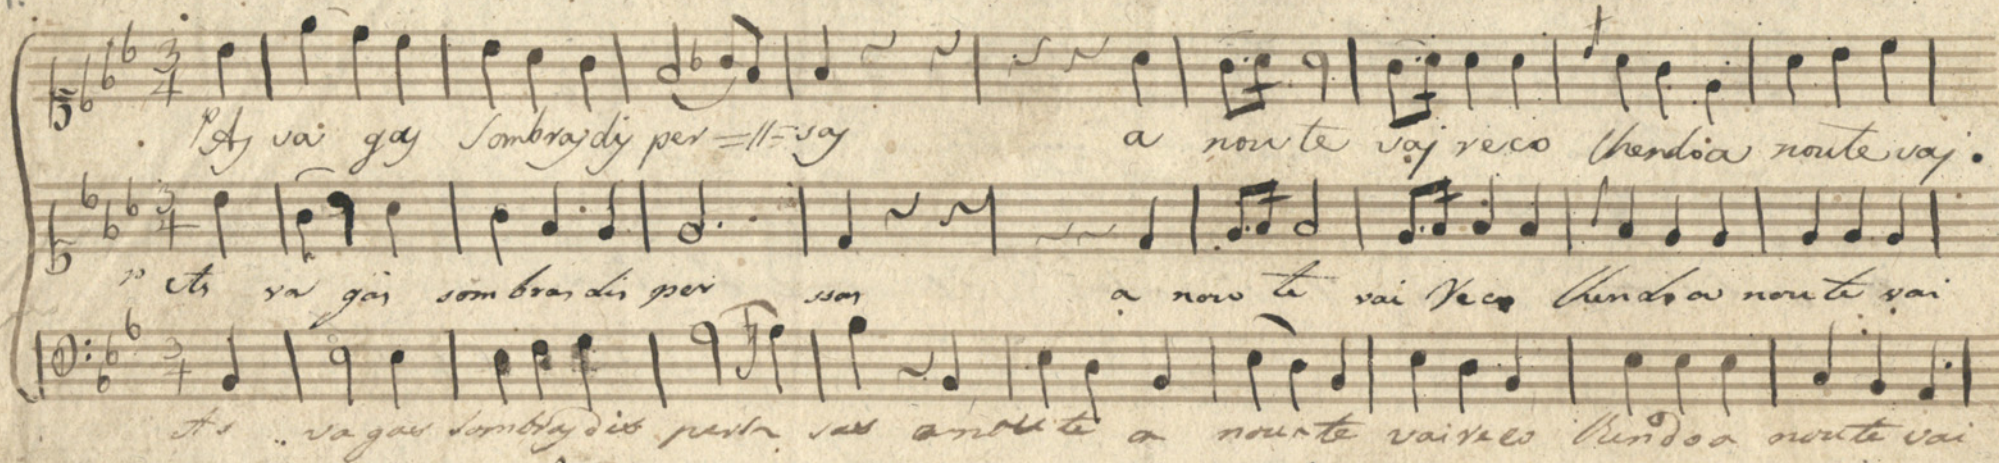 As va gas Sombras dis per=ll=sas a nou te vai reco lhendo a noute vai.
As va gas som bras dis per ssas a nou te vai Reco lhendo a nou te vai
As vagas sombras dis persa sas a noute a nou-te vai reco lhendo a noute vai